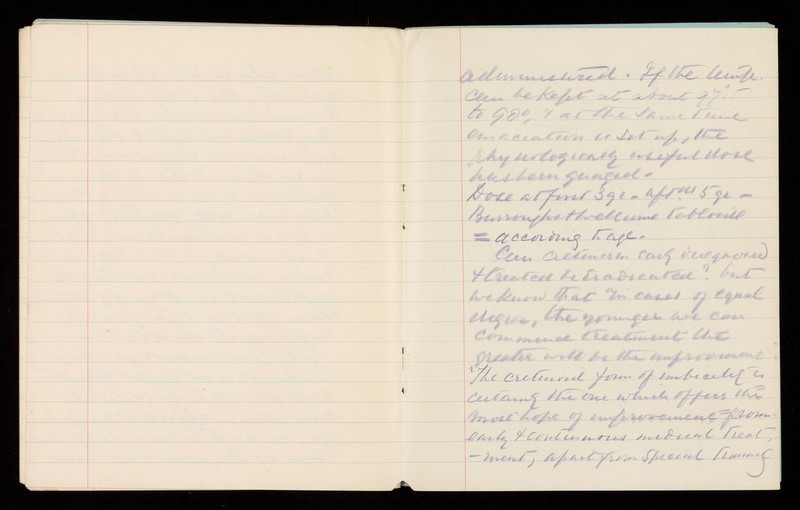 administered. If the temp.
can be kept at about 97.5
to 98°, & at the same time
emaciation is set up, the
physiologically useful dose
has been guaged.
Dose at first 3 gr. aftwds 5 gr -
Burroughs & Wellcome Tabloids
= according to age.
Can cretinism early diagnosed
& treated be eradicated? but
we know that "in cases of equal
degree, the younger we can
commence treatment the
greater will be the improvement".
"The cretinoid form of imbecility is
certainly the one which offers the
most hope of improvement from
early & continuous medical treat,
-ment, apart from special training